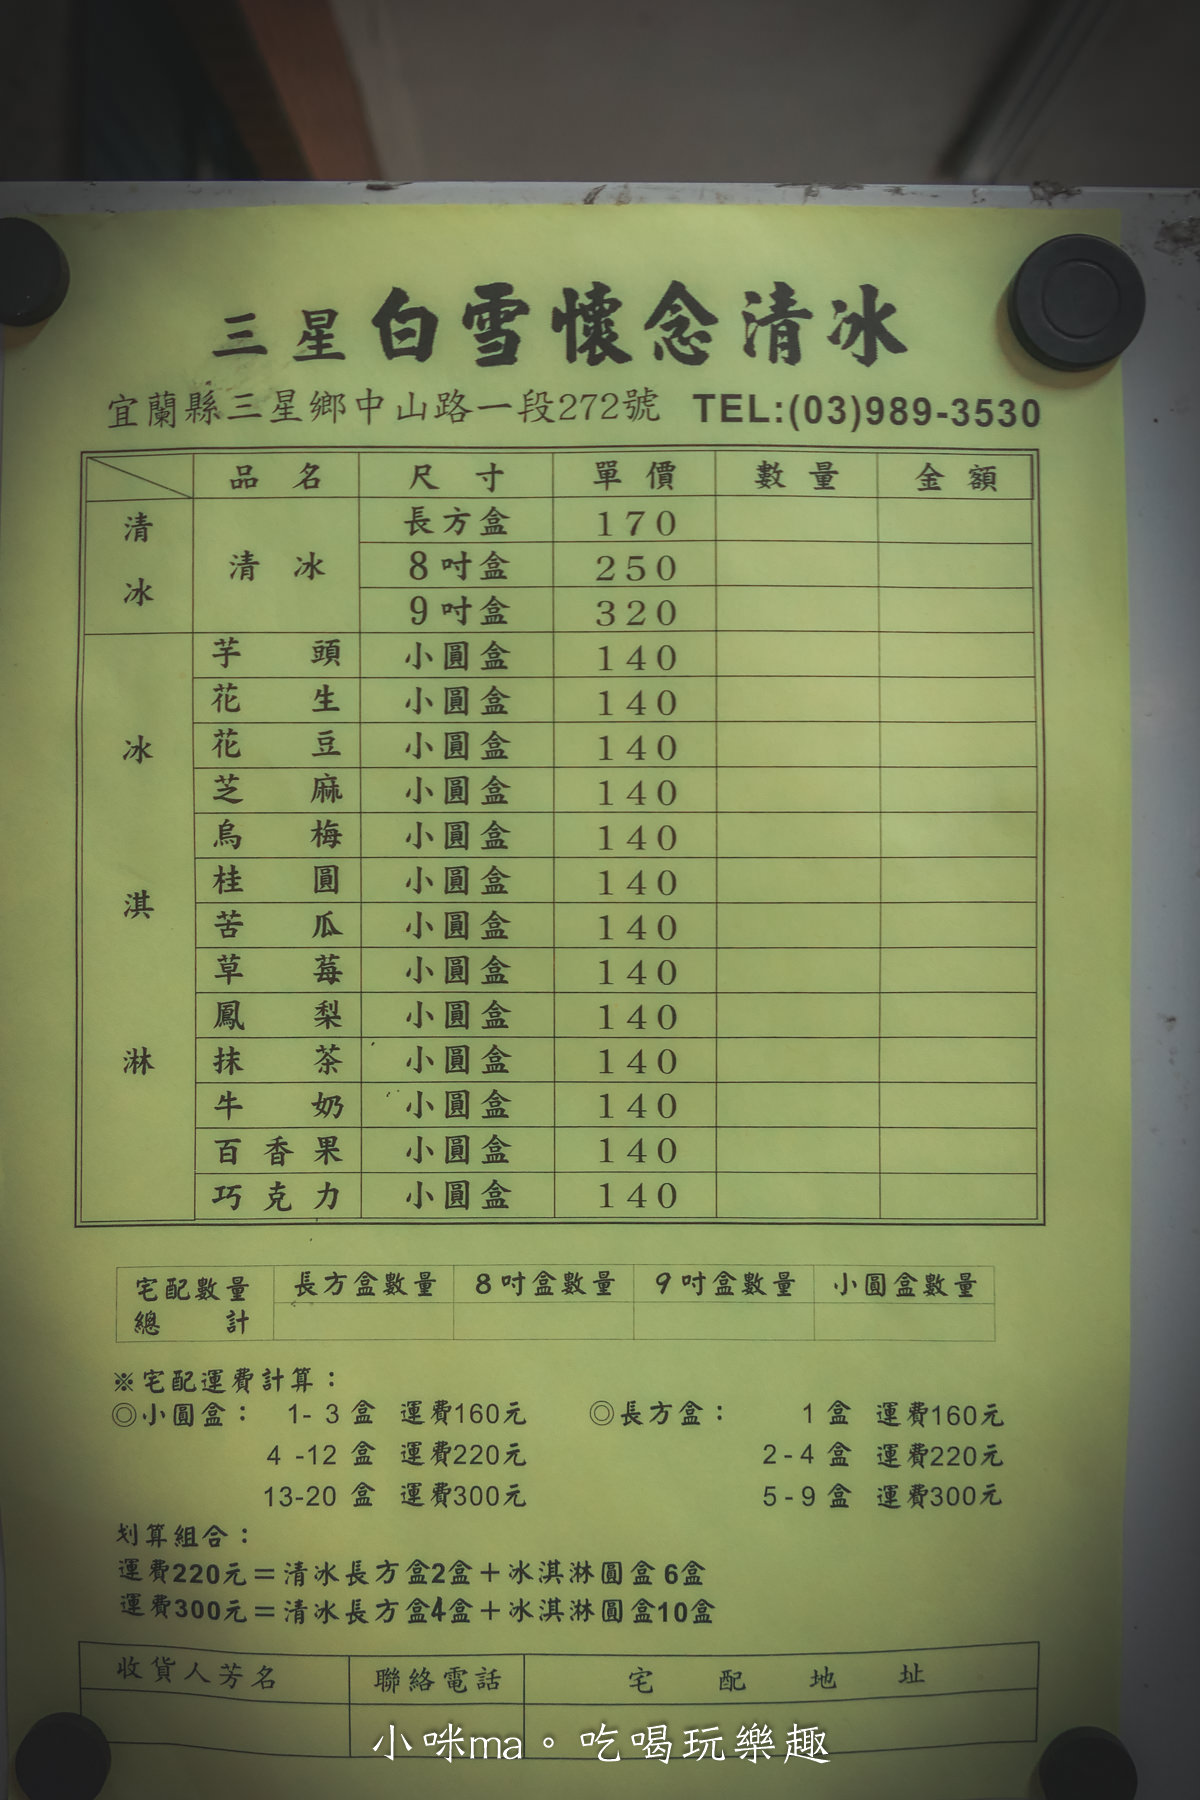 三星白雪懷念清冰
宜蘭縣三星鄉中山路一段272號 TEL:(03)989-3530
品名 尺寸 單價 數量 金額
清冰 清冰 長方盒 170
8吋盒 250
9吋盒 320
冰淇淋 芋頭 小圓盒 140
花生 小圓盒 140
花豆 小圓盒 140
芝麻 小圓盒 140
烏梅 小圓盒 140
桂圓 小圓盒 140
苦瓜 小圓盒 140
草莓 小圓盒 140
鳳梨 小圓盒 140
抹茶 小圓盒 140
牛奶 小圓盒 140
百香果 小圓盒 140
巧克力 小圓盒 140
宅配數量總計 長方盒數量 8吋盒數量 9吋盒數量 小圓盒數量
※宅配運費計算：
◎小圓盒： 1- 3 盒 運費160元 ◎長方盒： 1 盒 運費160元
4 -12 盒 運費220元 2-4 盒 運費220元
13-20 盒 運費300元 5-9 盒 運費300元
划算組合：
運費220元＝清冰長方盒2盒＋冰淇淋圓盒 6盒
運費300元＝清冰長方盒4盒＋冰淇淋圓盒10盒
收貨人芳名 聯絡電話 宅配地址
小咪ma。吃喝玩樂趣